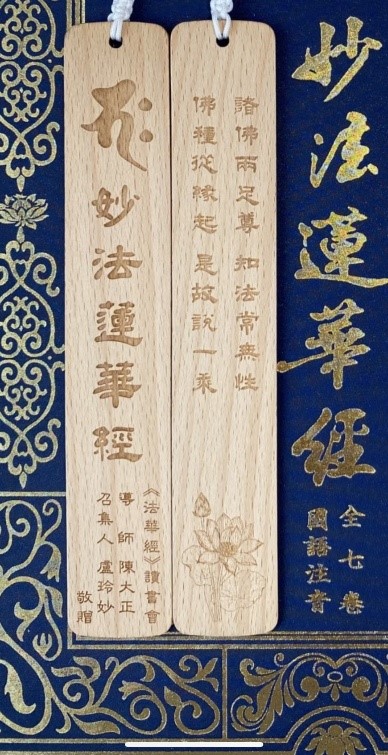 妙法蓮華經
全七卷
國語注音
諸佛兩足尊 知法常無性
佛種從緣起 是故說一乘
妙法蓮華經
《法華經》讀書會
導師 陳大正
召集人 盧玲妙
敬贈